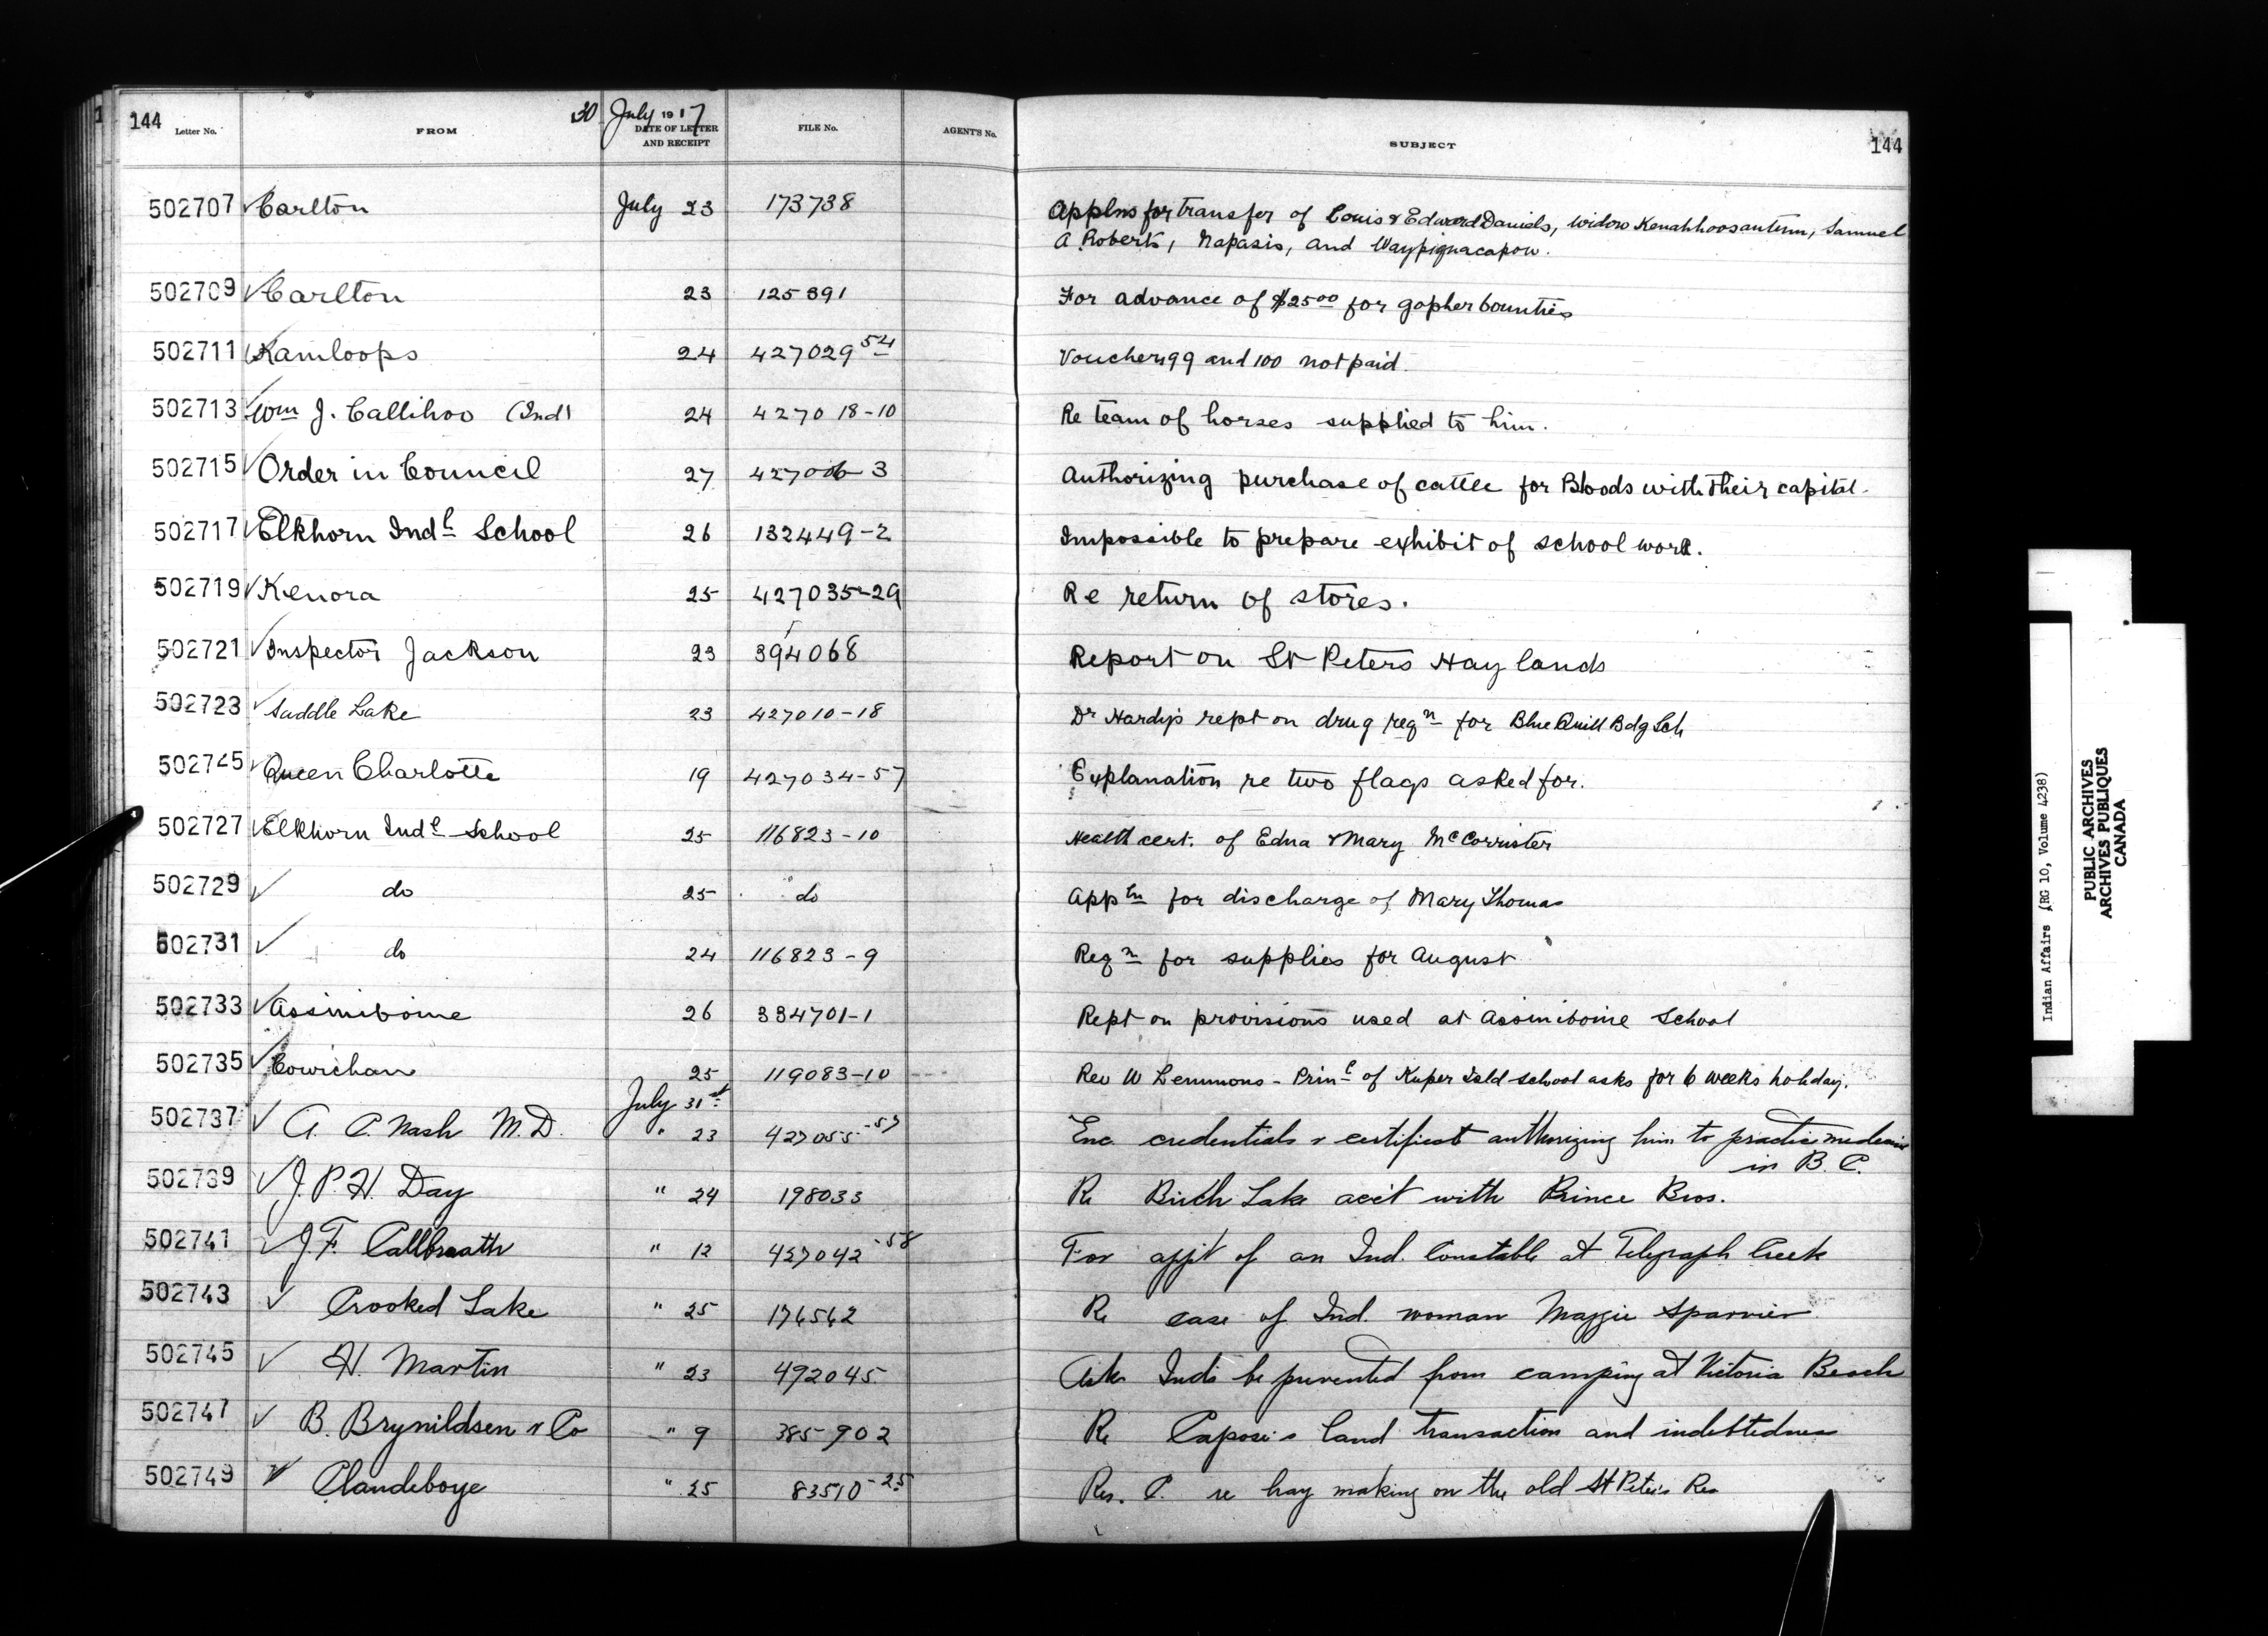 144 Letter No. FROM 30 July 1917 DATE OF LETTER AND RECEIPT FILE No. AGENT'S No. SUBJECT 144
502707 Carlton July 23 173738 Applns for transfer of Louis & Edward Daniels, widow Kenahhoosantum, Samuel
A Roberts, Napasis, and Waypiquacapow.
502709 Carlton 23 125391 For advance of $25.00 for gopher bounties
502711 Kamloops 24 427029 54 Vouchers 99 and 100 not paid.
502713 Wm J. Callihoo (Ind) 24 427018-10 Re team of horses supplied to him.
502715 Order in Council 27 427006-3 Authorizing purchase of cattle for Bloods with their capital.
502717 Elkhorn Indl School 26 132449-2 Impossible to prepare exhibit of school work.
502719 Kenora 25 427035-29 Re return of stores.
502721 Inspector Jackson 23 394068 Report on St Peters Hay lands
502723 Saddle Lake 23 427010-18 Dr Hardy's rept on drug reqn for Blue Quill Bdg Sch
502745 Queen Charlotte 19 427034-57 Explanation re two flags asked for.
502727 Elkhorn Indl School 25 116823-10 Health cert. of Edna & Mary McCorrister
502729 do 25 do Appln for discharge of Mary Thomas
502731 do 24 116823-9 Reqn for supplies for August
502733 Assiniboine 26 334701-1 Rept on provisions used at Assiniboine School
502735 Cowichan 25 119083-10 Rev W Lemmons - Prinl of Kuper Isld School asks for 6 weeks holiday.
July 31st
502737 A. C. Nash M.D. " 23 427055-57 Enc credentials & certificat authorizing him to practice medicine
in B. C.
502739 J. P. H. Day " 24 198033 Re Birch Lake acc't with Prince Bros.
502741 J. F. Callbreath " 12 427042-58 For appt of an Ind. Constable at Telegraph Creek
502743 Crooked Lake " 25 174542 Re case of Ind. woman Maggie Sparvier
502745 H. Martin " 23 492045 Asks Inds be prevented from camping at Victoria Beach
502747 B. Brynildsen & Co " 9 385902 Re Capose's land transaction and indebtedness
502749 Clandeboye " 25 83510-25 Res. C. re hay making on the old St Peter's Res
Indian Affairs (RG 10, Volume 4238)
PUBLIC ARCHIVES
ARCHIVES PUBLIQUES
CANADA